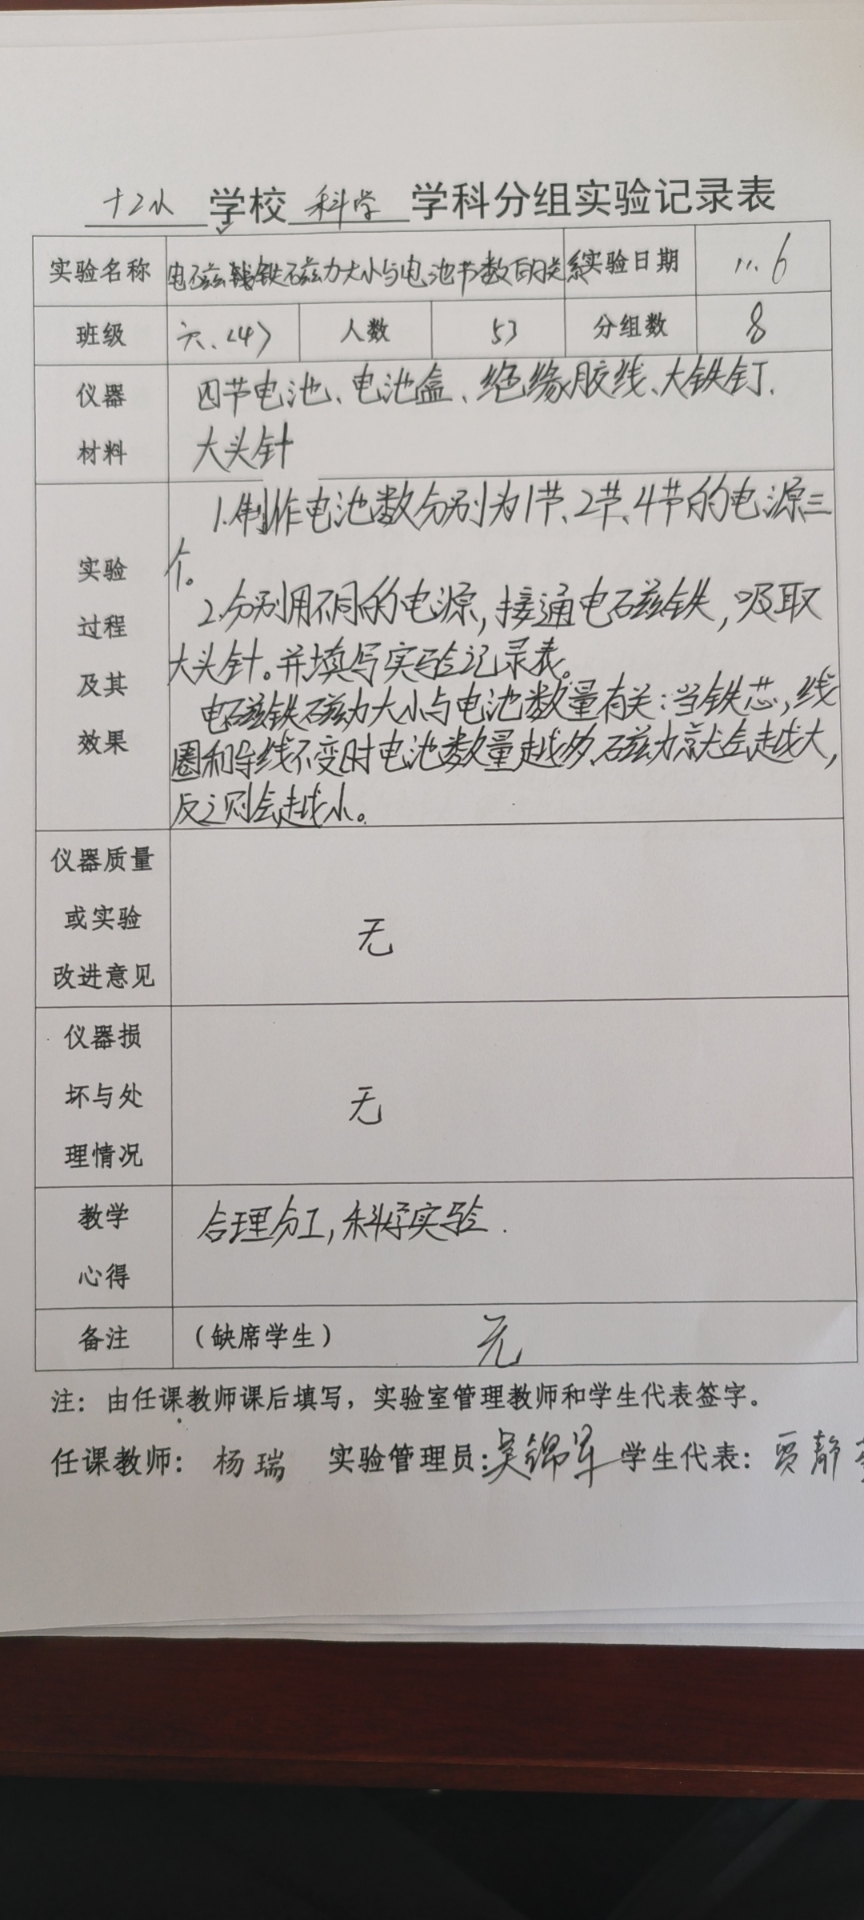 十二小 学校 科学 学科分组实验记录表
实验名称 电磁铁磁力大小与电池节数的关系 实验日期 11.6
班级 六.(4) 人数 53 分组数 8
仪器 四节电池、电池盒、绝缘胶线、大铁钉.
材料 大头针
1.制作电池数分别为1节、2节、4节的电源三
实验 个。
过程 2.分别用不同的电源,接通电磁铁,吸取
及其 大头针。并填写实验记录表。
效果 电磁铁磁力大小与电池数量有关:当铁芯,线
圈和导线不变时电池数量越多、磁力就会越大,
反之则会越小。
仪器质量
或实验 无
改进意见
仪器损
坏与处 无
理情况
教学 合理分工,科学实验.
心得
备注 (缺席学生) 无
注:由任课教师课后填写,实验室管理教师和学生代表签字。
任课教师: 杨瑞 实验管理员:吴锦军 学生代表: 贾静